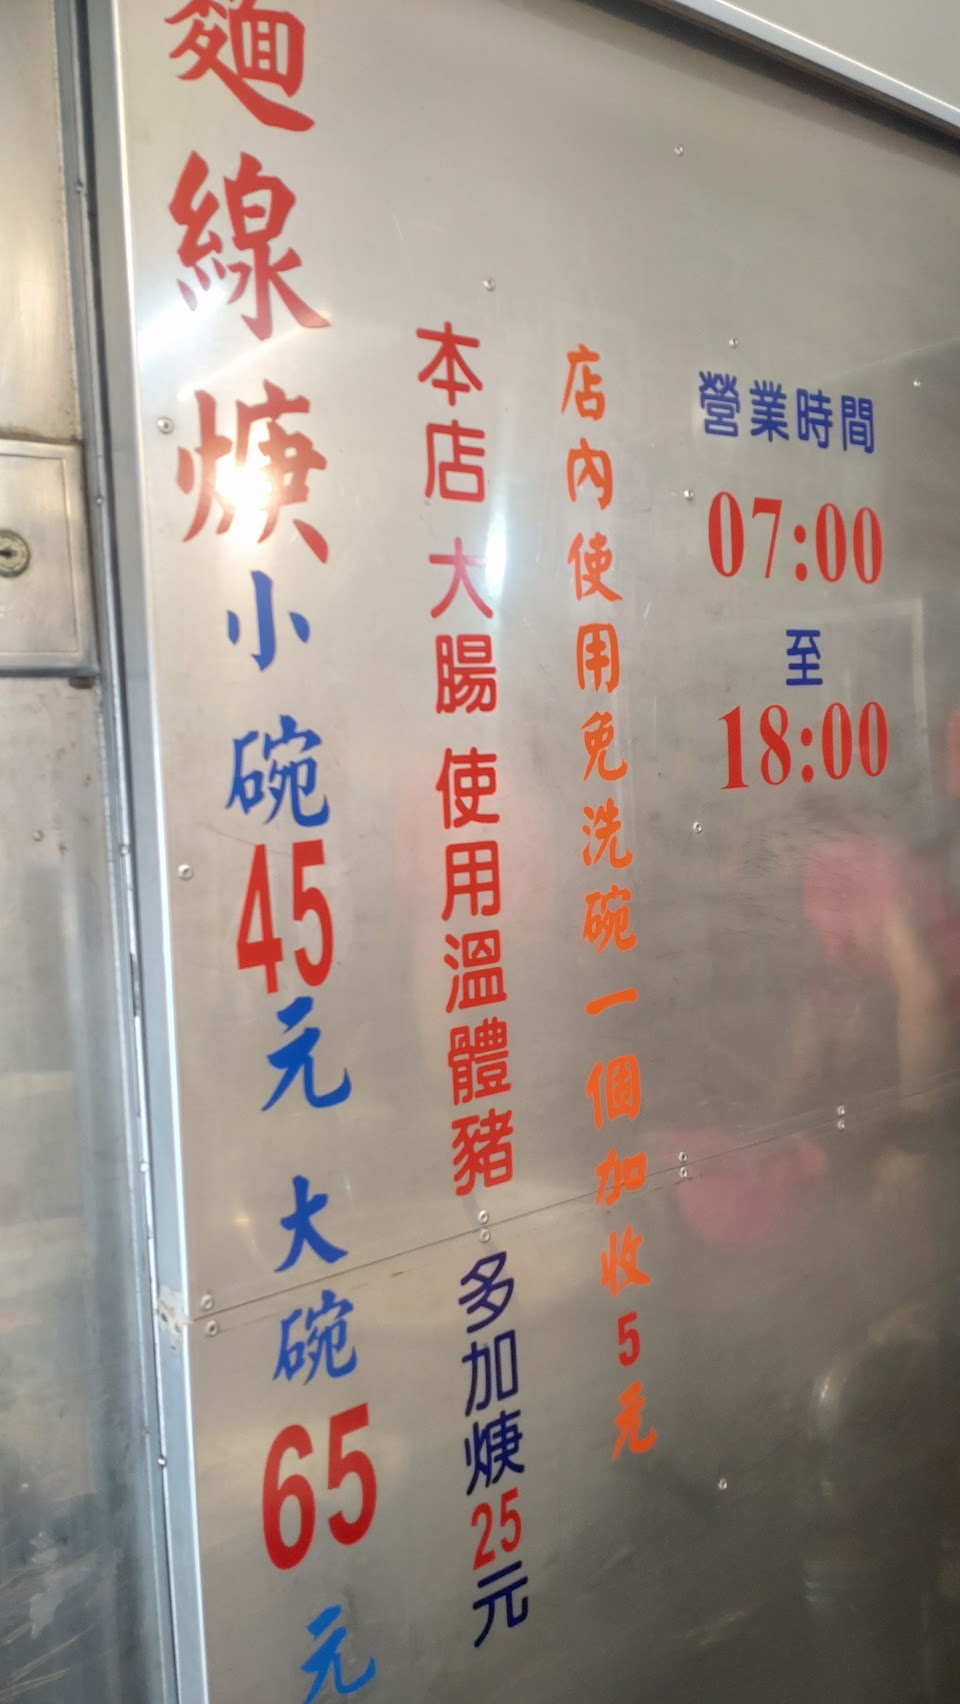 麵線焿小碗45元 大碗65元
本店大腸使用溫體豬 多加焿25元
店內使用免洗碗一個加收5元
營業時間
07:00
至
18:00